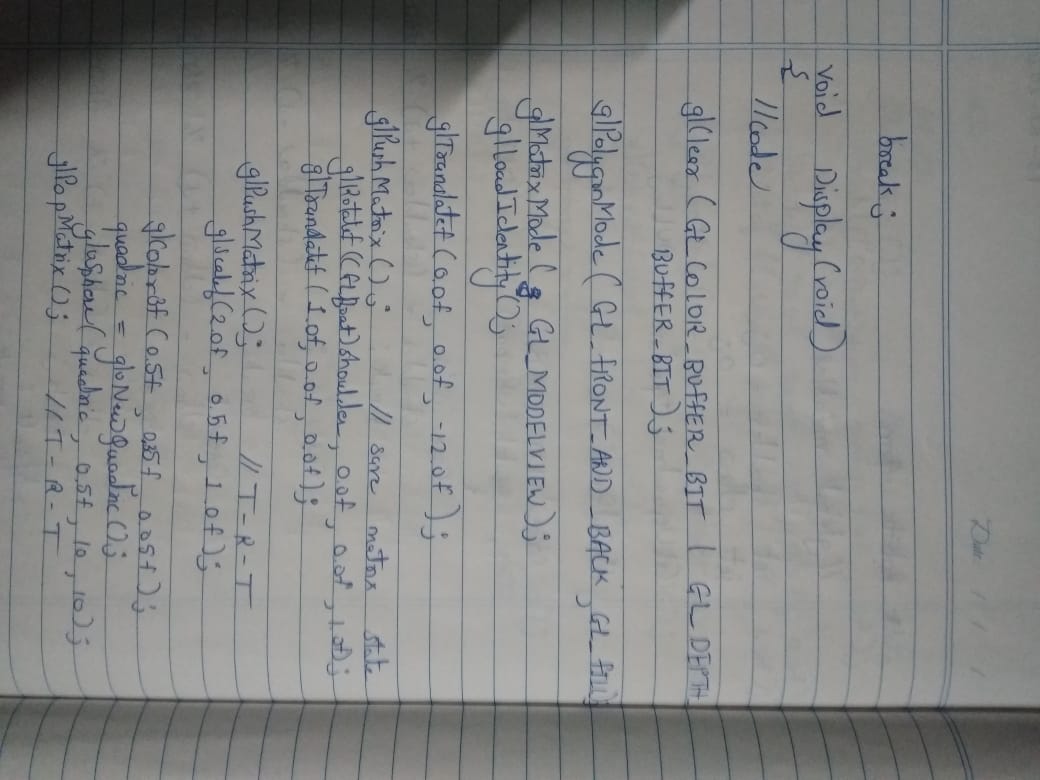 Date / / /
break;
void Display(void)
{
//Code
glClear (GL_COLOR_BUFFER_BIT | GL_DEPTH_
BUFFER_BIT);
glPolygonMode (GL_FRONT_AND_BACK, GL_FILL);
glMatrixMode (GL_MODELVIEW);
glLoadIdentity();
glTranslatef (0.0f, 0.0f, -12.0f);
glPushMatrix(); // save matrix state
glRotatef((GLfloat)shoulder, 0.0f, 0.0f, 1.0f);
glTranslatef (1.0f, 0.0f, 0.0f);
glPushMatrix(); // T-R-T
glScalef(2.0f, 0.5f, 1.0f);
glColor3f (0.5f, 0.35f, 0.05f);
quadric = gluNewQuadric();
gluSphere(quadric, 0.5f, 10, 10);
glPopMatrix(); // T-R-T